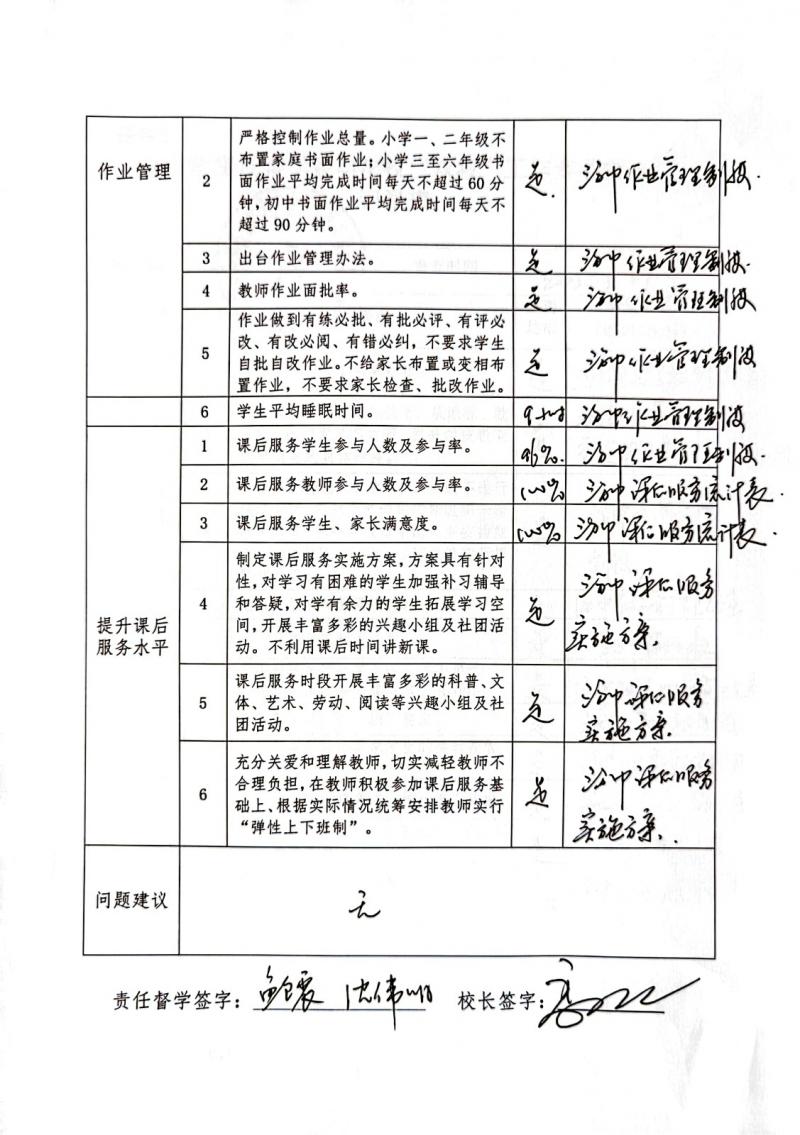 作业管理
2
严格控制作业总量。小学一、二年级不
布置家庭书面作业；小学三至六年级书
面作业平均完成时间每天不超过 60 分
钟，初中书面作业平均完成时间每天不
超过 90 分钟。
是
作业管理制度.
3
出台作业管理办法。
是
作业管理制度.
4
教师作业面批率。
是
作业管理制度
5
作业做到有练必批、有批必评、有评必
改、有改必阅、有错必纠，不要求学生
自批自改作业。不给家长布置或变相布
置作业，不要求家长检查、批改作业。
是
作业管理制度
6
学生平均睡眠时间。
作业管理制度
提升课后
服务水平
1
课后服务学生参与人数及参与率。
96%.
作业管理制度.
2
课后服务教师参与人数及参与率。
100%
课后服务统计表.
3
课后服务学生、家长满意度。
100%
课后服务统计表.
4
制定课后服务实施方案，方案具有针对
性，对学习有困难的学生加强补习辅导
和答疑，对学有余力的学生拓展学习空
间，开展丰富多彩的兴趣小组及社团活
动。不利用课后时间讲新课。
是
课后服务
实施方案.
5
课后服务时段开展丰富多彩的科普、文
体、艺术、劳动、阅读等兴趣小组及社
团活动。
是
课后服务
实施方案.
6
充分关爱和理解教师，切实减轻教师不
合理负担，在教师积极参加课后服务基
础上、根据实际情况统筹安排教师实行
“弹性上下班制”。
是
课后服务
实施方案.
问题建议
无
责任督学签字：
校长签字：